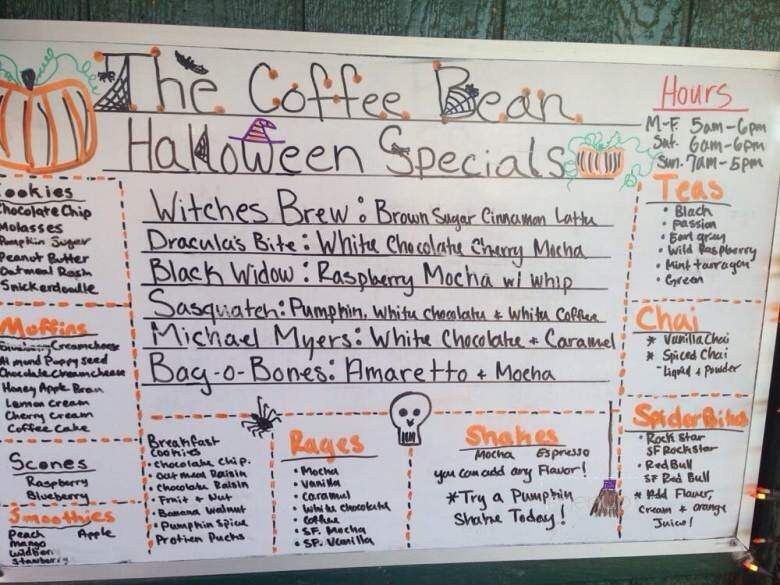 The Coffee Bean
Halloween Specials
Hours
M-F. 5am-6pm
Sat. 6am-6pm
Sun. 7am-5pm
Witches Brew: Brown Sugar Cinnamon Latte
Dracula's Bite: White Chocolate Cherry Mocha
Black Widow: Raspberry Mocha w/ whip
Sasquatch: Pumpkin, White chocolate & White Coffee
Michael Myers: White Chocolate & Caramel
Bag-o-Bones: Amaretto & Mocha
ookies
Chocolate Chip
Molasses
Pumpkin Suger
Peanut Butter
Oatmeal
Snickerdoodle
Muffins
Creamcheese
Almond Poppy seed
Chocolate Creamcheese
Honey Apple Bran
Lemon cream
Cherry cream
Coffee Cake
Scones
Raspberry
Blueberry
Smoothies
Peach Apple
Mango
Wildberry
Strawberry
Breakfast
Cookies
• Chocolate Chip.
• Oatmeal Raisin
• Chocolate Raisin
• Fruit & Nut
• Banana Walnut
• Pumpkin Spice
Protien Pucks
Rages
• Mocha
• Vanilla
• Caramel
• White chocolate
• Coffee
• S.F. Mocha
• SF. Vanilla
Shakes
Mocha Espresso
you can add any Flavor!
* Try a Pumpkin
Shake Today!
Teas
• Black
• Passion
• Earl gray
• Wild Raspberry
• Mint tarragon
• Green
Chai
* Vanilla Chai
* Spiced Chai
- Liquid & Powder
Spider Bites
• Rock Star
SF Rockstar
• Red Bull
SF Red Bull
* Add Flavor,
Cream & orange
Juice!